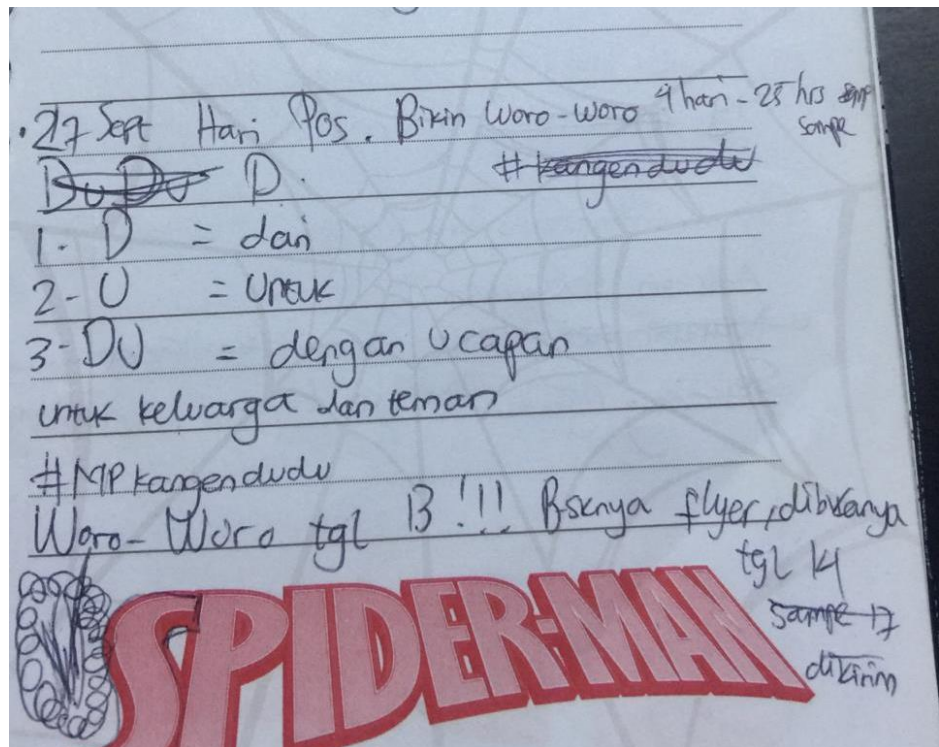 .27 Sept Hari Pos. Bikin Woro-woro 4 hari - 25 hrs
sampe
Du Du D.
#kangendudu
1. D = dari
2 - U = Untuk
3 - DU = dengan Ucapan
untuk keluarga dan teman
#MPkangendudu
Woro-Woro tgl 13!!! Bsknya flyer, dibukanya
tgl 14
sampe 17
dikirim
SPIDER-MAN